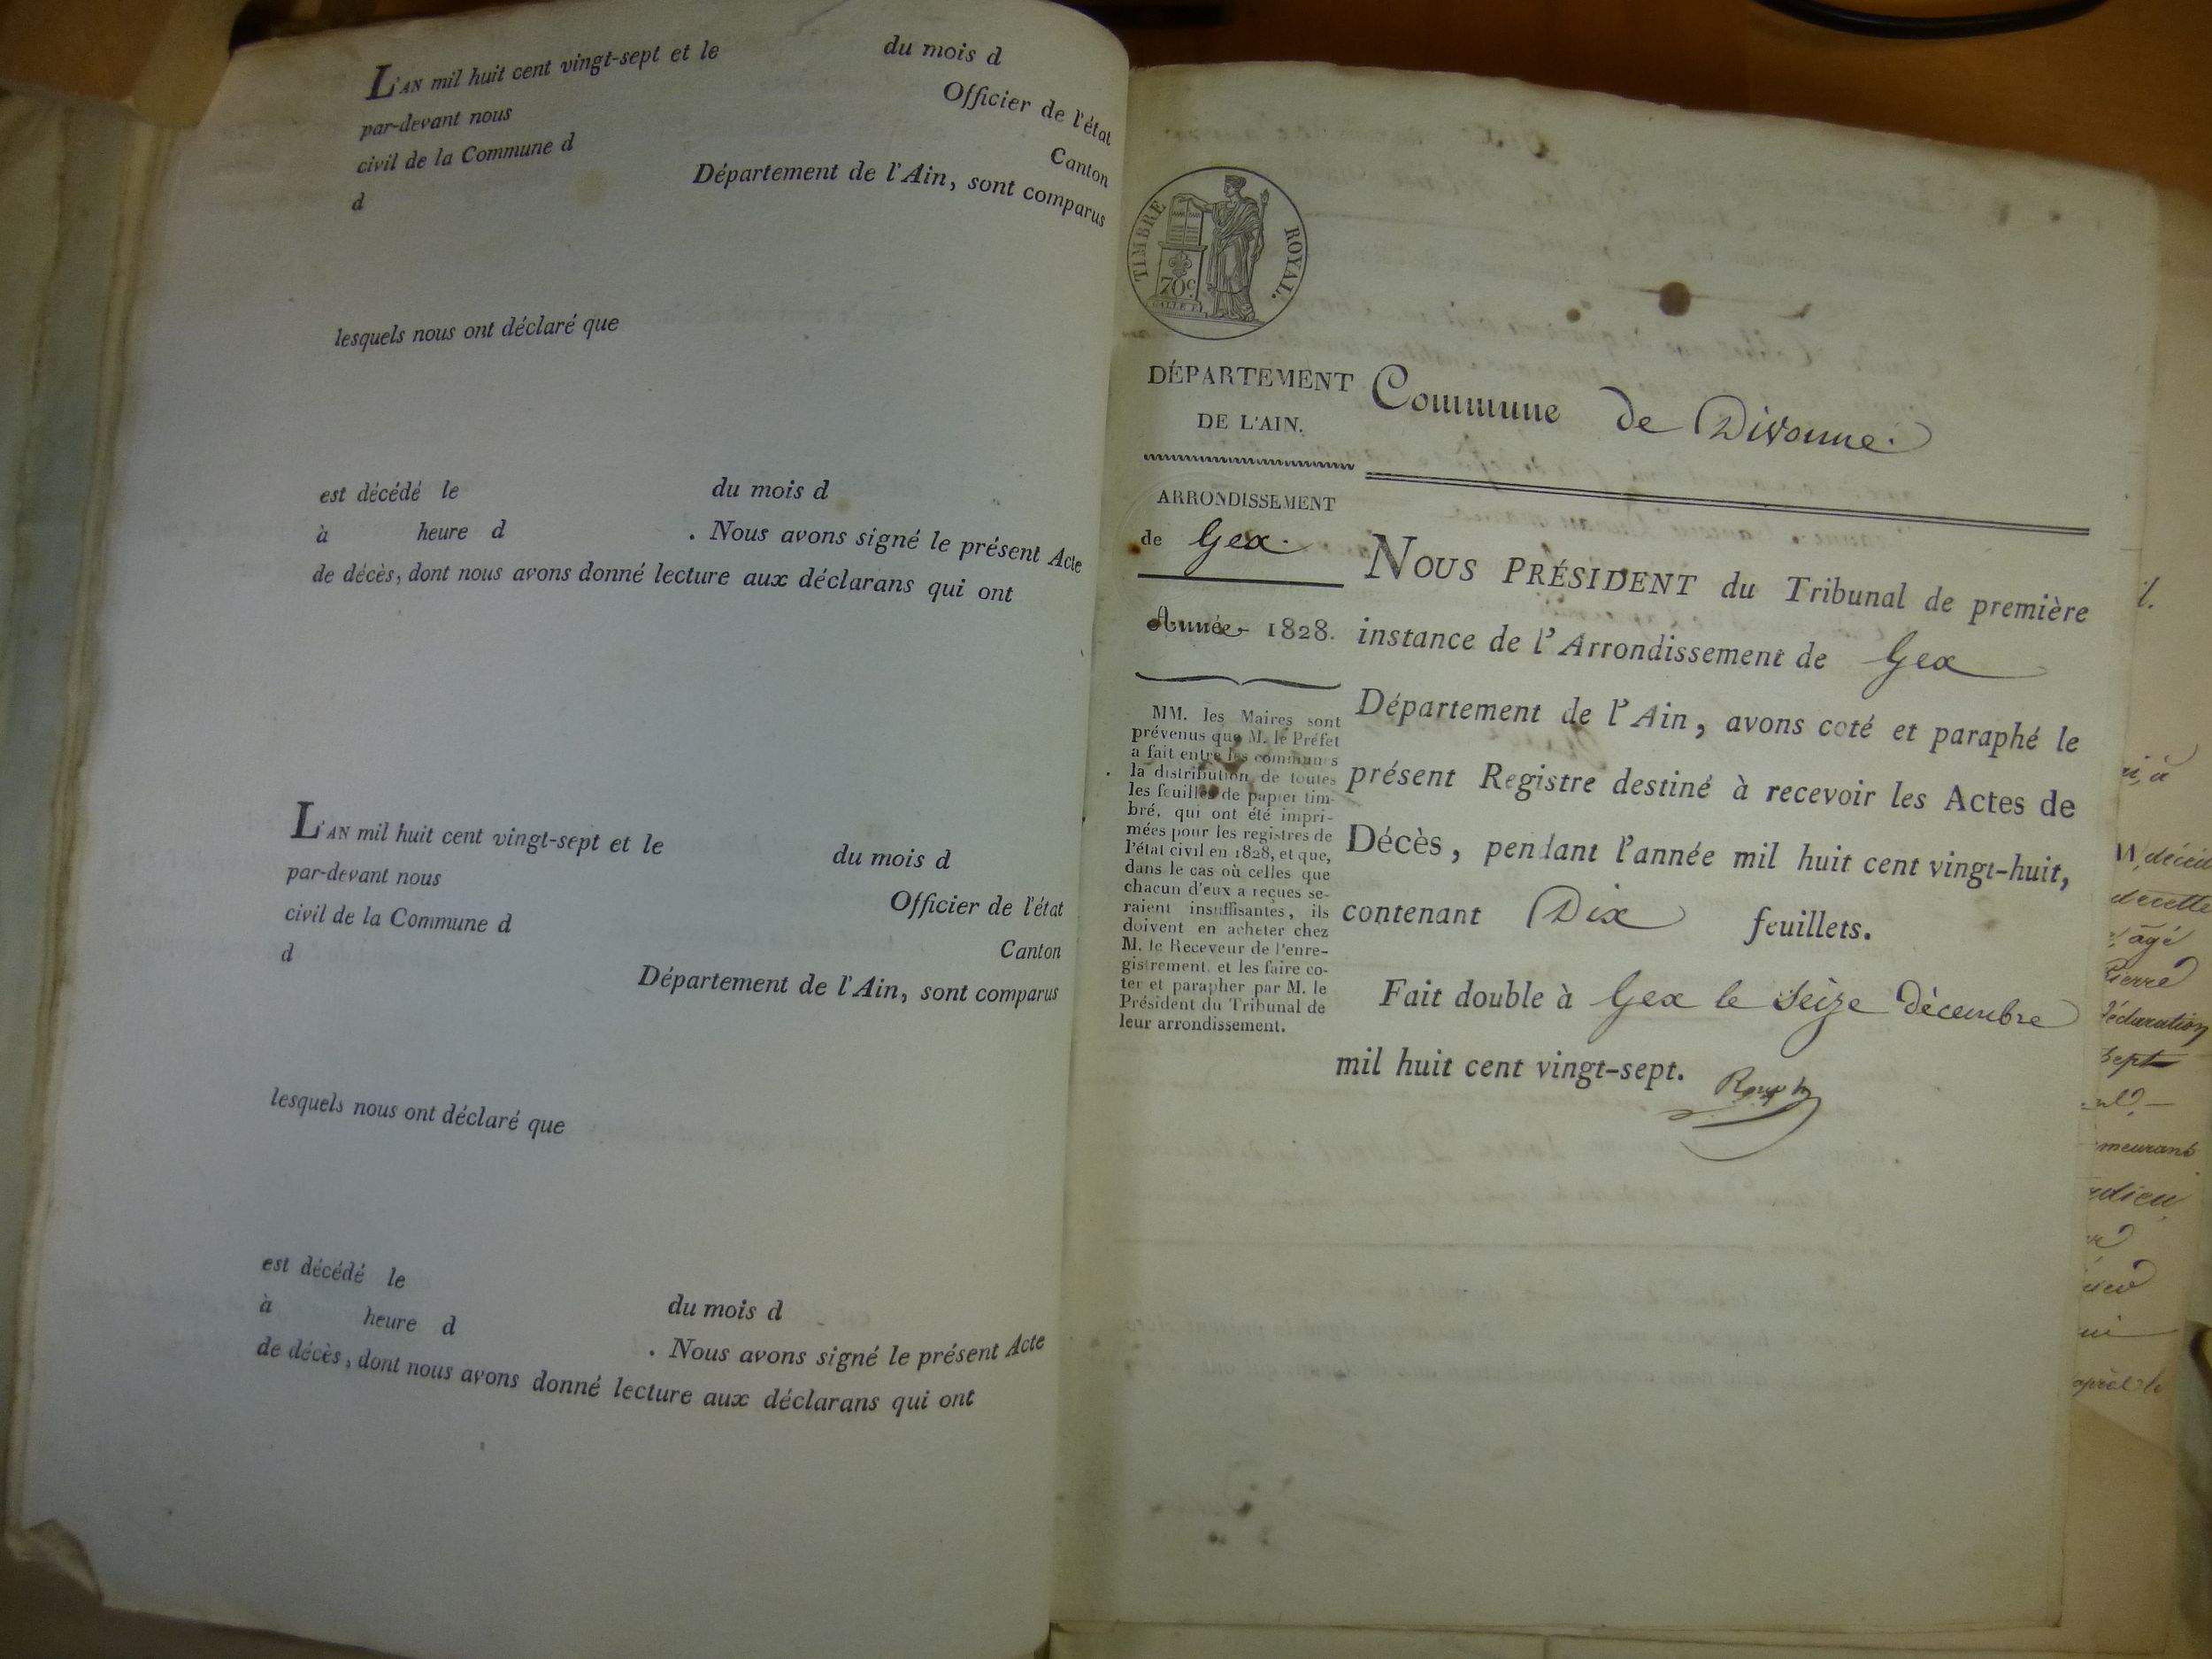 L'AN mil huit cent vingt-sept et le du mois d
par-devant nous Officier de l'état
civil de la Commune d Canton
d Département de l'Ain, sont comparus
lesquels nous ont déclaré que
est décédé le du mois d
à heure d . Nous avons signé le présent Acte
de décès, dont nous avons donné lecture aux déclarans qui ont
L'AN mil huit cent vingt-sept et le du mois d
par-devant nous Officier de l'état
civil de la Commune d Canton
d Département de l'Ain, sont comparus
lesquels nous ont déclaré que
est décédé le du mois d
à heure d . Nous avons signé le présent Acte
de décès, dont nous avons donné lecture aux déclarans qui ont
TIMBRE ROYAL.
70c
DÉPARTEMENT
DE L'AIN.
ARRONDISSEMENT
de Gex.
Année 1828.
MM. les Maires sont
prévenus que M. le Préfet
a fait entre les communes
la distribution de toutes
les feuilles de papier tim-
bré, qui ont été impri-
mées pour les registres de
l'état civil en 1828, et que,
dans le cas où celles que
chacun d'eux a reçues se-
raient insuffisantes, ils
doivent en acheter chez
M. le Receveur de l'enre-
gistrement, et les faire co-
ter et parapher par M. le
Président du Tribunal de
leur arrondissement.
Commune de Divonne.
NOUS PRÉSIDENT du Tribunal de première
instance de l'Arrondissement de Gex
Département de l'Ain, avons coté et paraphé le
présent Registre destiné à recevoir les Actes de
Décès, pendant l'année mil huit cent vingt-huit,
contenant Dix feuillets.
Fait double à Gex le Seize décembre
mil huit cent vingt-sept.
âgé
Pierre
déclaration
Sept